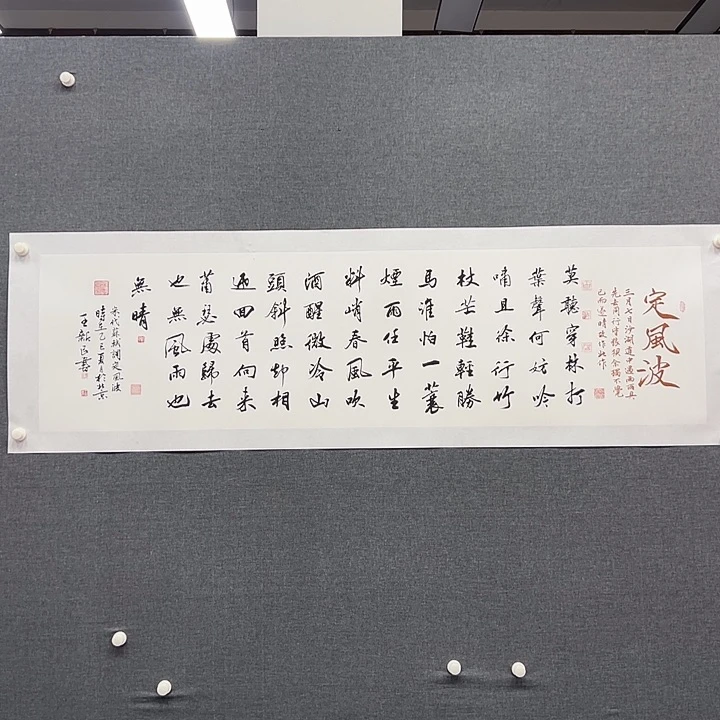 定風波
三月七日沙湖道中遇雨雨具
先去同行皆狼狽余獨不覺
已而遂晴故作此
莫聽穿林打
葉聲何妨吟
嘯且徐行竹
杖芒鞋輕勝
馬誰怕一蓑
煙雨任平生
料峭春風吹
酒醒微冷山
頭斜照却相
迎回首向来
蕭瑟處歸去
也無風雨也
無晴
宋代蘇軾詞定風波
時在乙巳夏月於北京
王民書